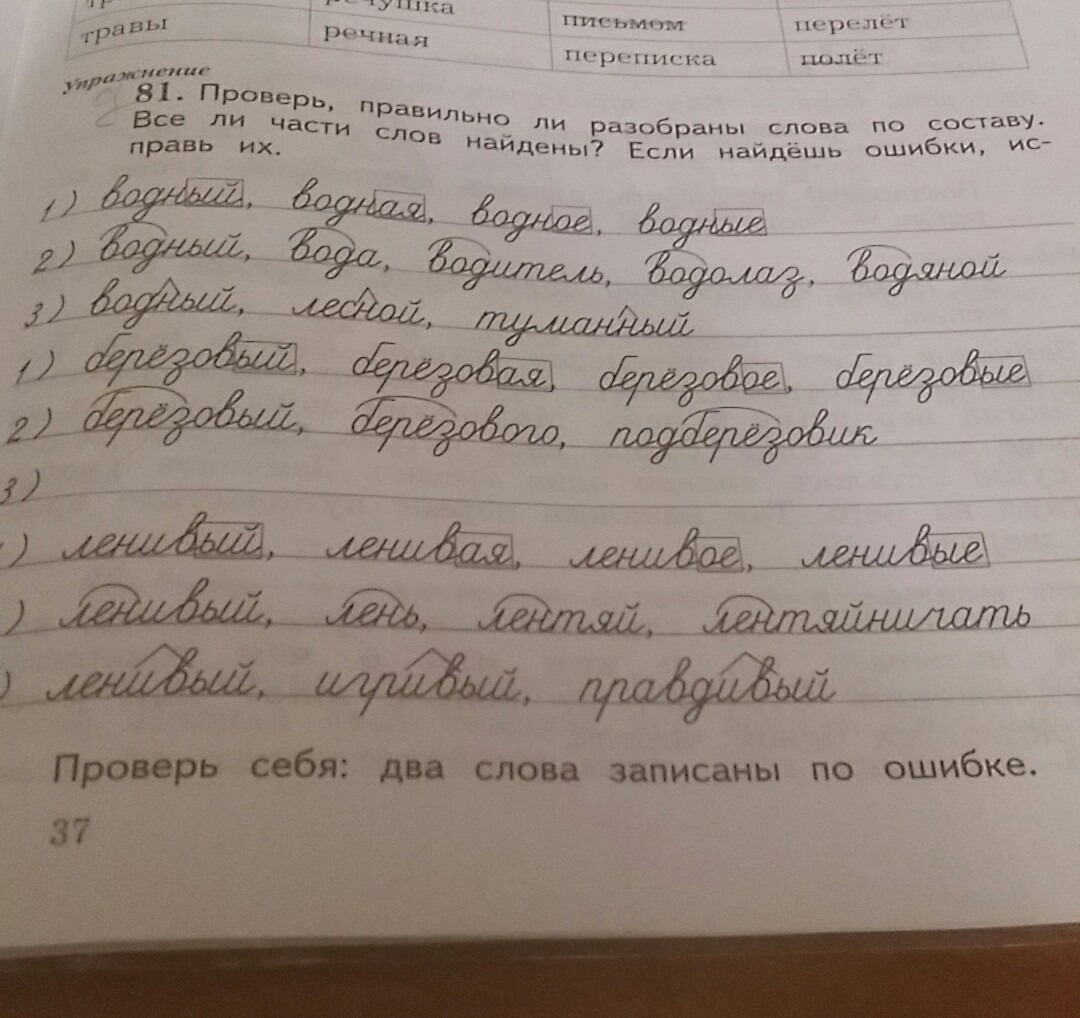 речушка письмом перелёт
травы речная переписка полёт
упражнение
81. Проверь, правильно ли разобраны слова по составу.
Все ли части слов найдены? Если найдёшь ошибки, ис-
правь их.
1) водный, водная, водное, водные
2) водный, вода, водитель, водолаз, водяной
3) водный, лесной, туманный
1) берёзовый, берёзовая, берёзовое, берёзовые
2) берёзовый, берёзового, подберёзовик
3)
) ленивый, ленивая, ленивое, ленивые
) ленивый, лень, лентяй, лентяйничать
) ленивый, игривый, правдивый
Проверь себя: два слова записаны по ошибке.
37